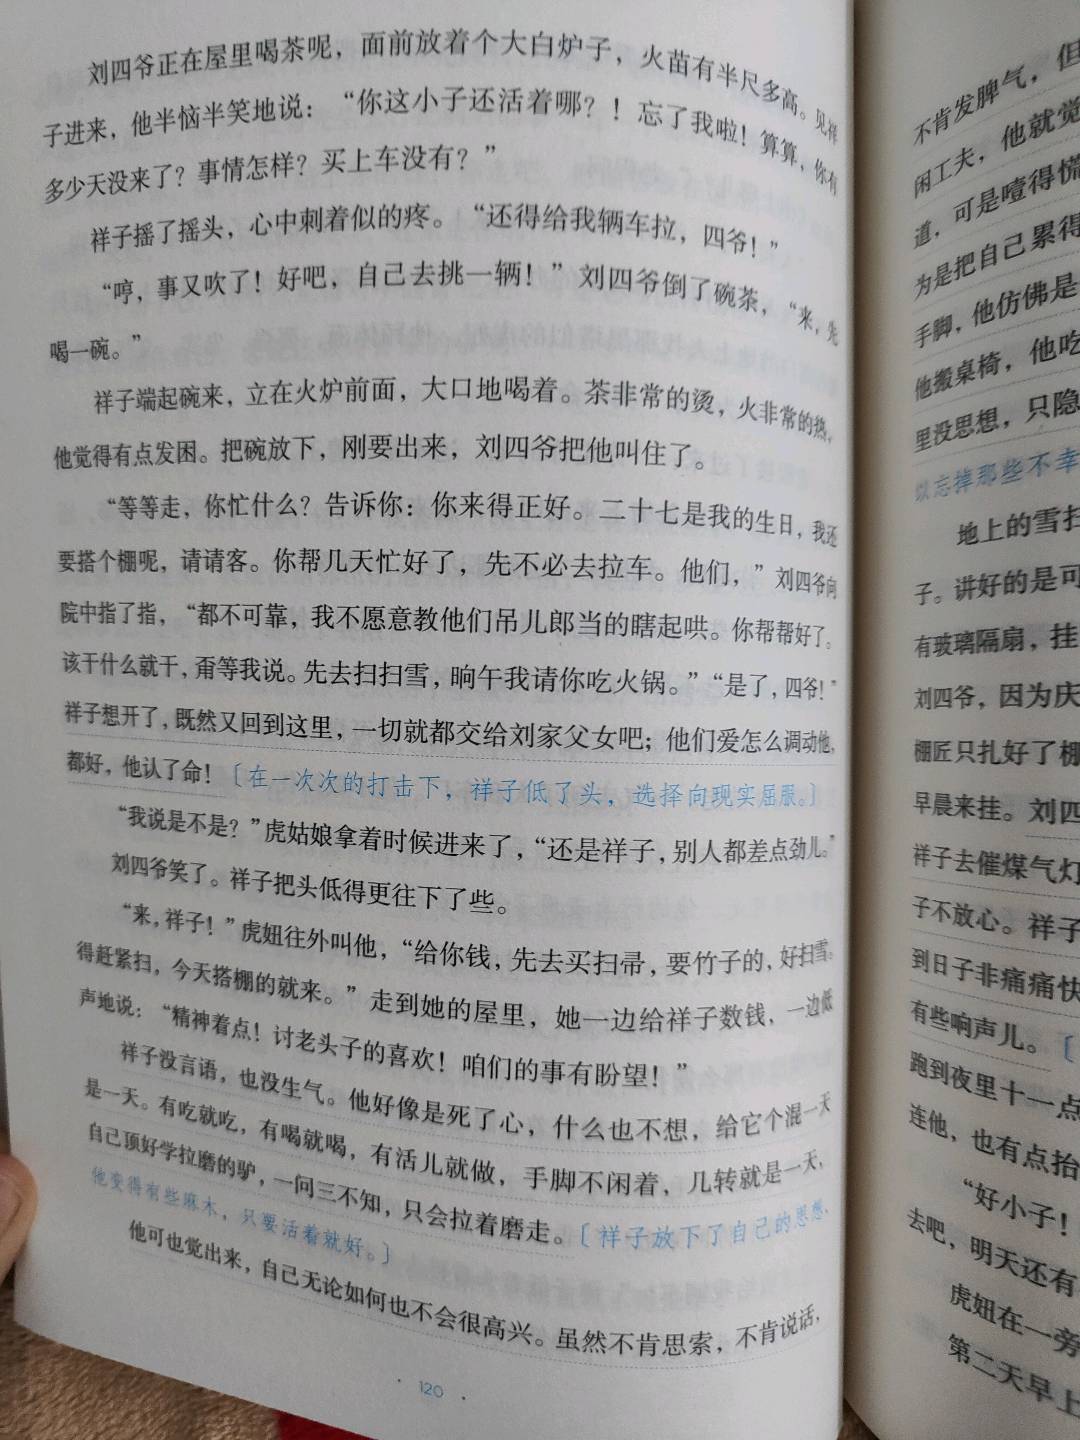 刘四爷正在屋里喝茶呢，面前放着个大白炉子，火苗有半尺多高。见祥
子进来，他半恼半笑地说：“你这小子还活着哪？！忘了我啦！算算，你有
多少天没来了？事情怎样？买上车没有？”
祥子摇了摇头，心中刺着似的疼。“还得给我辆车拉，四爷！”
“哼，事又吹了！好吧，自己去挑一辆！”刘四爷倒了碗茶，“来，先
喝一碗。”
祥子端起碗来，立在火炉前面，大口地喝着。茶非常的烫，火非常的热，
他觉得有点发困。把碗放下，刚要出来，刘四爷把他叫住了。
“等等走，你忙什么？告诉你：你来得正好。二十七是我的生日，我还
要搭个棚呢，请请客。你帮几天忙好了，先不必去拉车。他们，”刘四爷向
院中指了指，“都不可靠，我不愿意教他们吊儿郎当的瞎起哄。你帮帮好了。
该干什么就干，甭等我说。先去扫扫雪，晌午我请你吃火锅。”“是了，四爷！”
祥子想开了，既然又回到这里，一切就都交给刘家父女吧；他们爱怎么调动他，
都好，他认了命！〔在一次次的打击下，祥子低了头，选择向现实屈服。〕
“我说是不是？”虎姑娘拿着时候进来了，“还是祥子，别人都差点劲儿。”
刘四爷笑了。祥子把头低得更往下了些。
“来，祥子！”虎妞往外叫他，“给你钱，先去买扫帚，要竹子的，好扫雪。
得赶紧扫，今天搭棚的就来。”走到她的屋里，她一边给祥子数钱，一边低
声地说：“精神着点！讨老头子的喜欢！咱们的事有盼望！”
祥子没言语，也没生气。他好像是死了心，什么也不想，给它个混一天
是一天。有吃就吃，有喝就喝，有活儿就做，手脚不闲着，几转就是一天，
自己顶好学拉磨的驴，一问三不知，只会拉着磨走。〔祥子放下了自己的思想，
他变得有些麻木，只要活着就好。〕
他可也觉出来，自己无论如何也不会很高兴。虽然不肯思索，不肯说话，
· 120 ·
不肯发脾气，但
闲工夫，他就觉
道，可是噎得慌
为是把自己累得
手脚，他仿佛是
他搬桌椅，他吃
里没思想，只隐
以忘掉那些不幸
地上的雪扫
子。讲好的是可
有玻璃隔扇，挂
刘四爷，因为庆
棚匠只扎好了棚
早晨来挂。刘四
祥子去催煤气灯
子不放心。祥子
到日子非痛痛快
有些响声儿。〔
跑到夜里十一点
连他，也有点抬
“好小子！
去吧，明天还有
虎妞在一旁
第二天早上